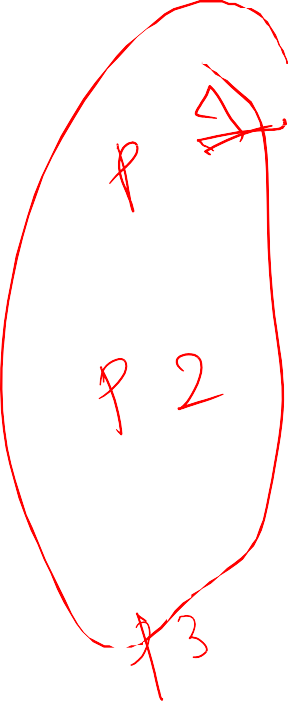 P
P 2
P 3